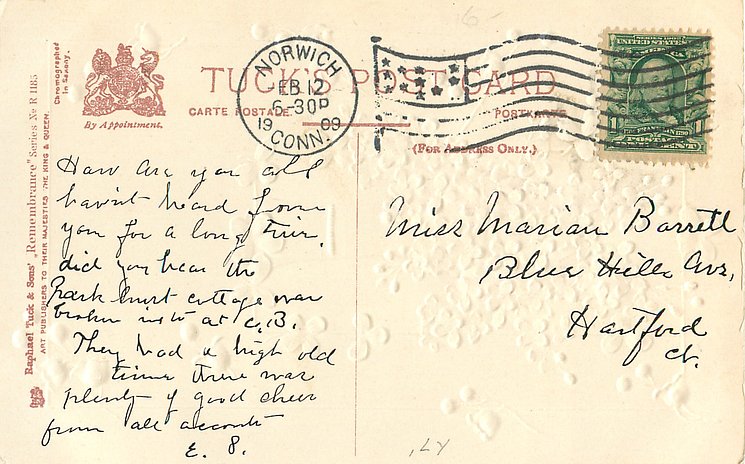 Chromographed
in Saxony.
By Appointment.
Raphael Tuck & Sons' „Remembrance" Series No R 1185
ART PUBLISHERS TO THEIR MAJESTIES THE KING & QUEEN.
TUCK'S POST CARD
CARTE POSTALE. POSTKARTE
(FOR ADDRESS ONLY.)
NORWICH
FEB 12
6-30P
1909
CONN.
SERIES 1902
UNITED STATES
1 1
POSTAGE
How are you all
havn't heard from
you for a long time.
did you hear the
cottage was
broken into at C.B.
They had a high old
time there was
plenty of good cheer
from all accounts
E. S.
Miss Marian Barrett
Blue Hills Ave,
Hartford
Ct.